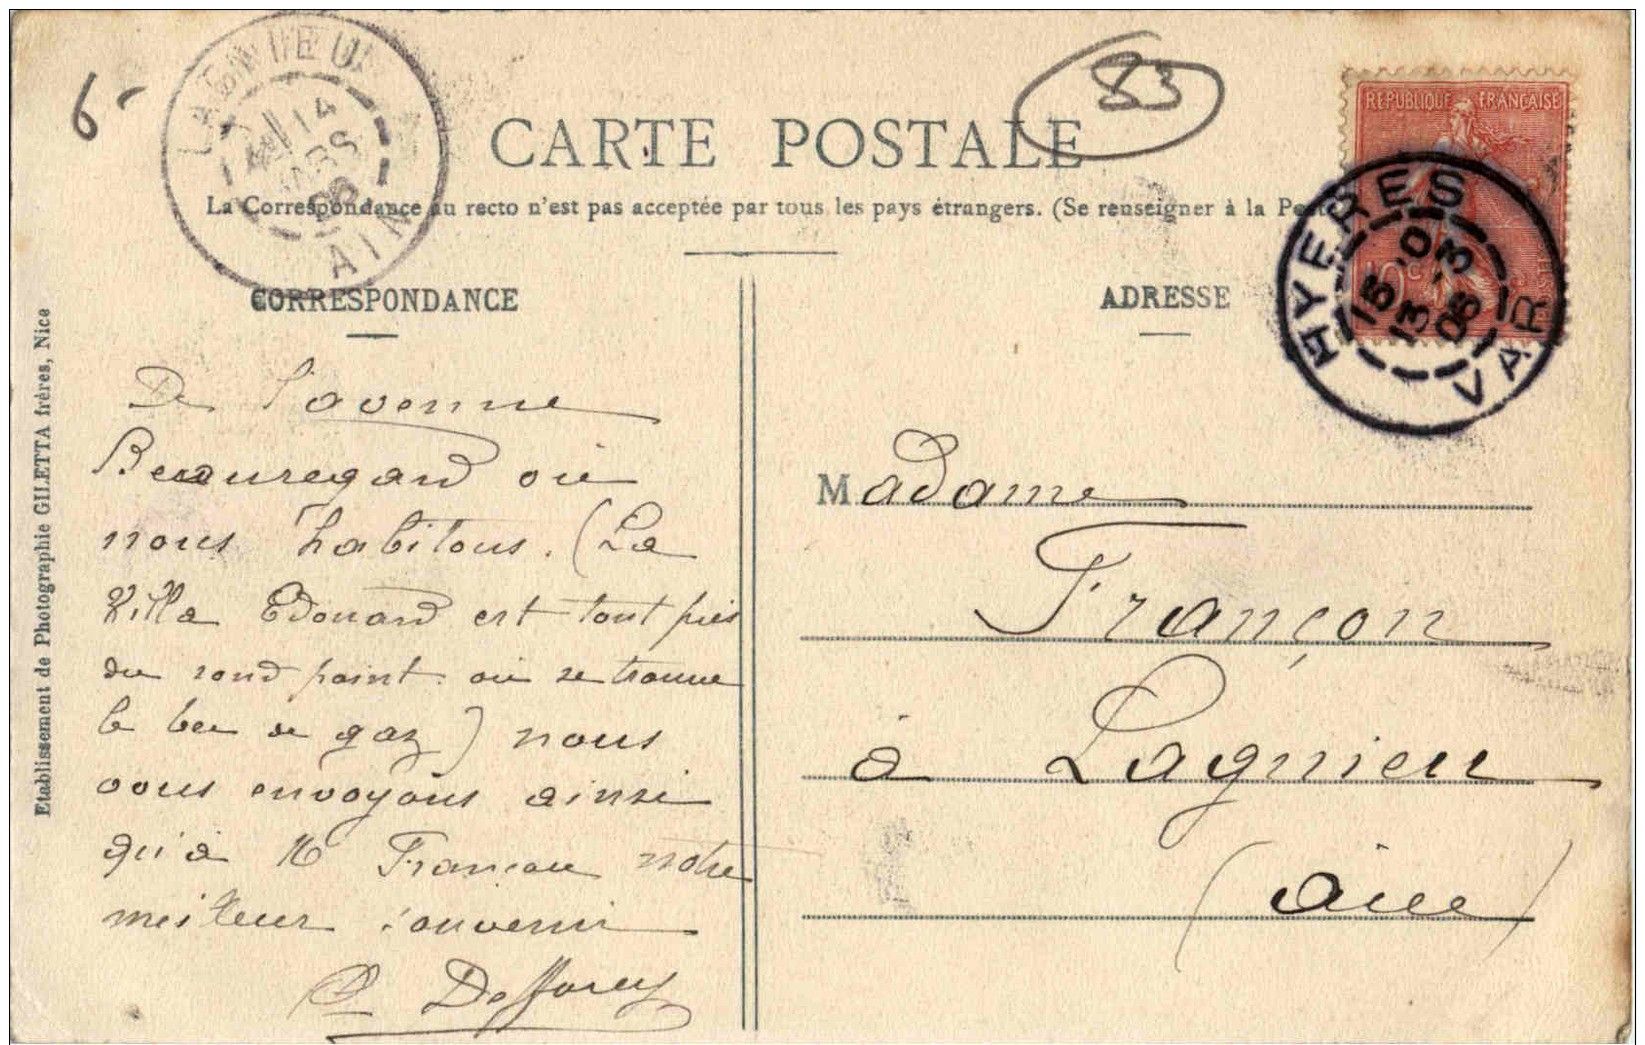 6-
LAGNIEU
14
MARS
06
AIN
83
CARTE POSTALE
La Correspondance au recto n'est pas acceptée par tous les pays étrangers. (Se renseigner à la Poste
REPUBLIQUE FRANÇAISE
10c
HYERES
15 . 0
13 . 3
06
VAR
CORRESPONDANCE
ADRESSE
Etablissement de Photographie GILETTA frères, Nice
De l'avenue
Beauregard où
nous habitons. (La
Villa Edouard est tout près
du rond point où se trouve
le bec de gaz) nous
vous envoyons ainsi
qu'à M Françon notre
meilleur souvenir
Madame
Françon
à Lagnieu
(Ain)